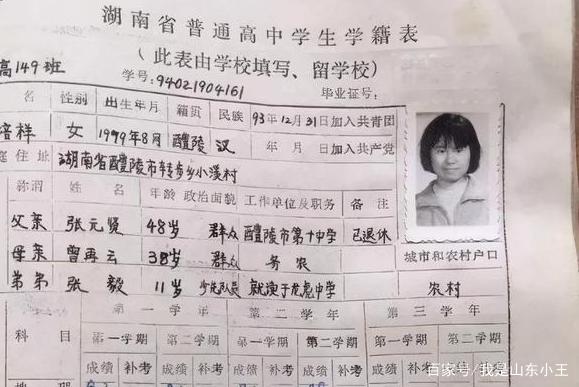 湖南省普通高中学生学籍表
(此表由学校填写、留学校)
高149班
学号:94021904161 毕业证号:
名 性别 出生年月 籍贯 民族 93年12月31日加入共青团
培样 女 1979年8月 醴陵 汉 年 月 日加入共产党
庭住址 湖南省醴陵市转步乡小溪村
称谓 姓名 年龄 政治面貌 工作单位及职务 备注
父亲 张元贤 48岁 群众 醴陵市第十中学 已退休
母亲 曾再云 38岁 群众 务农
城市和农村户口
弟弟 张毅 11岁 少先队员 就读于龙虎中学
农村
科目 第一学年 第二学年 第三学年
第一学期 第二学期 第一学期 第二学期 第一学期 第二学期
成绩 补考 成绩 补考 成绩 补考 成绩 补考 成绩 补考
百家号/我是山东小王